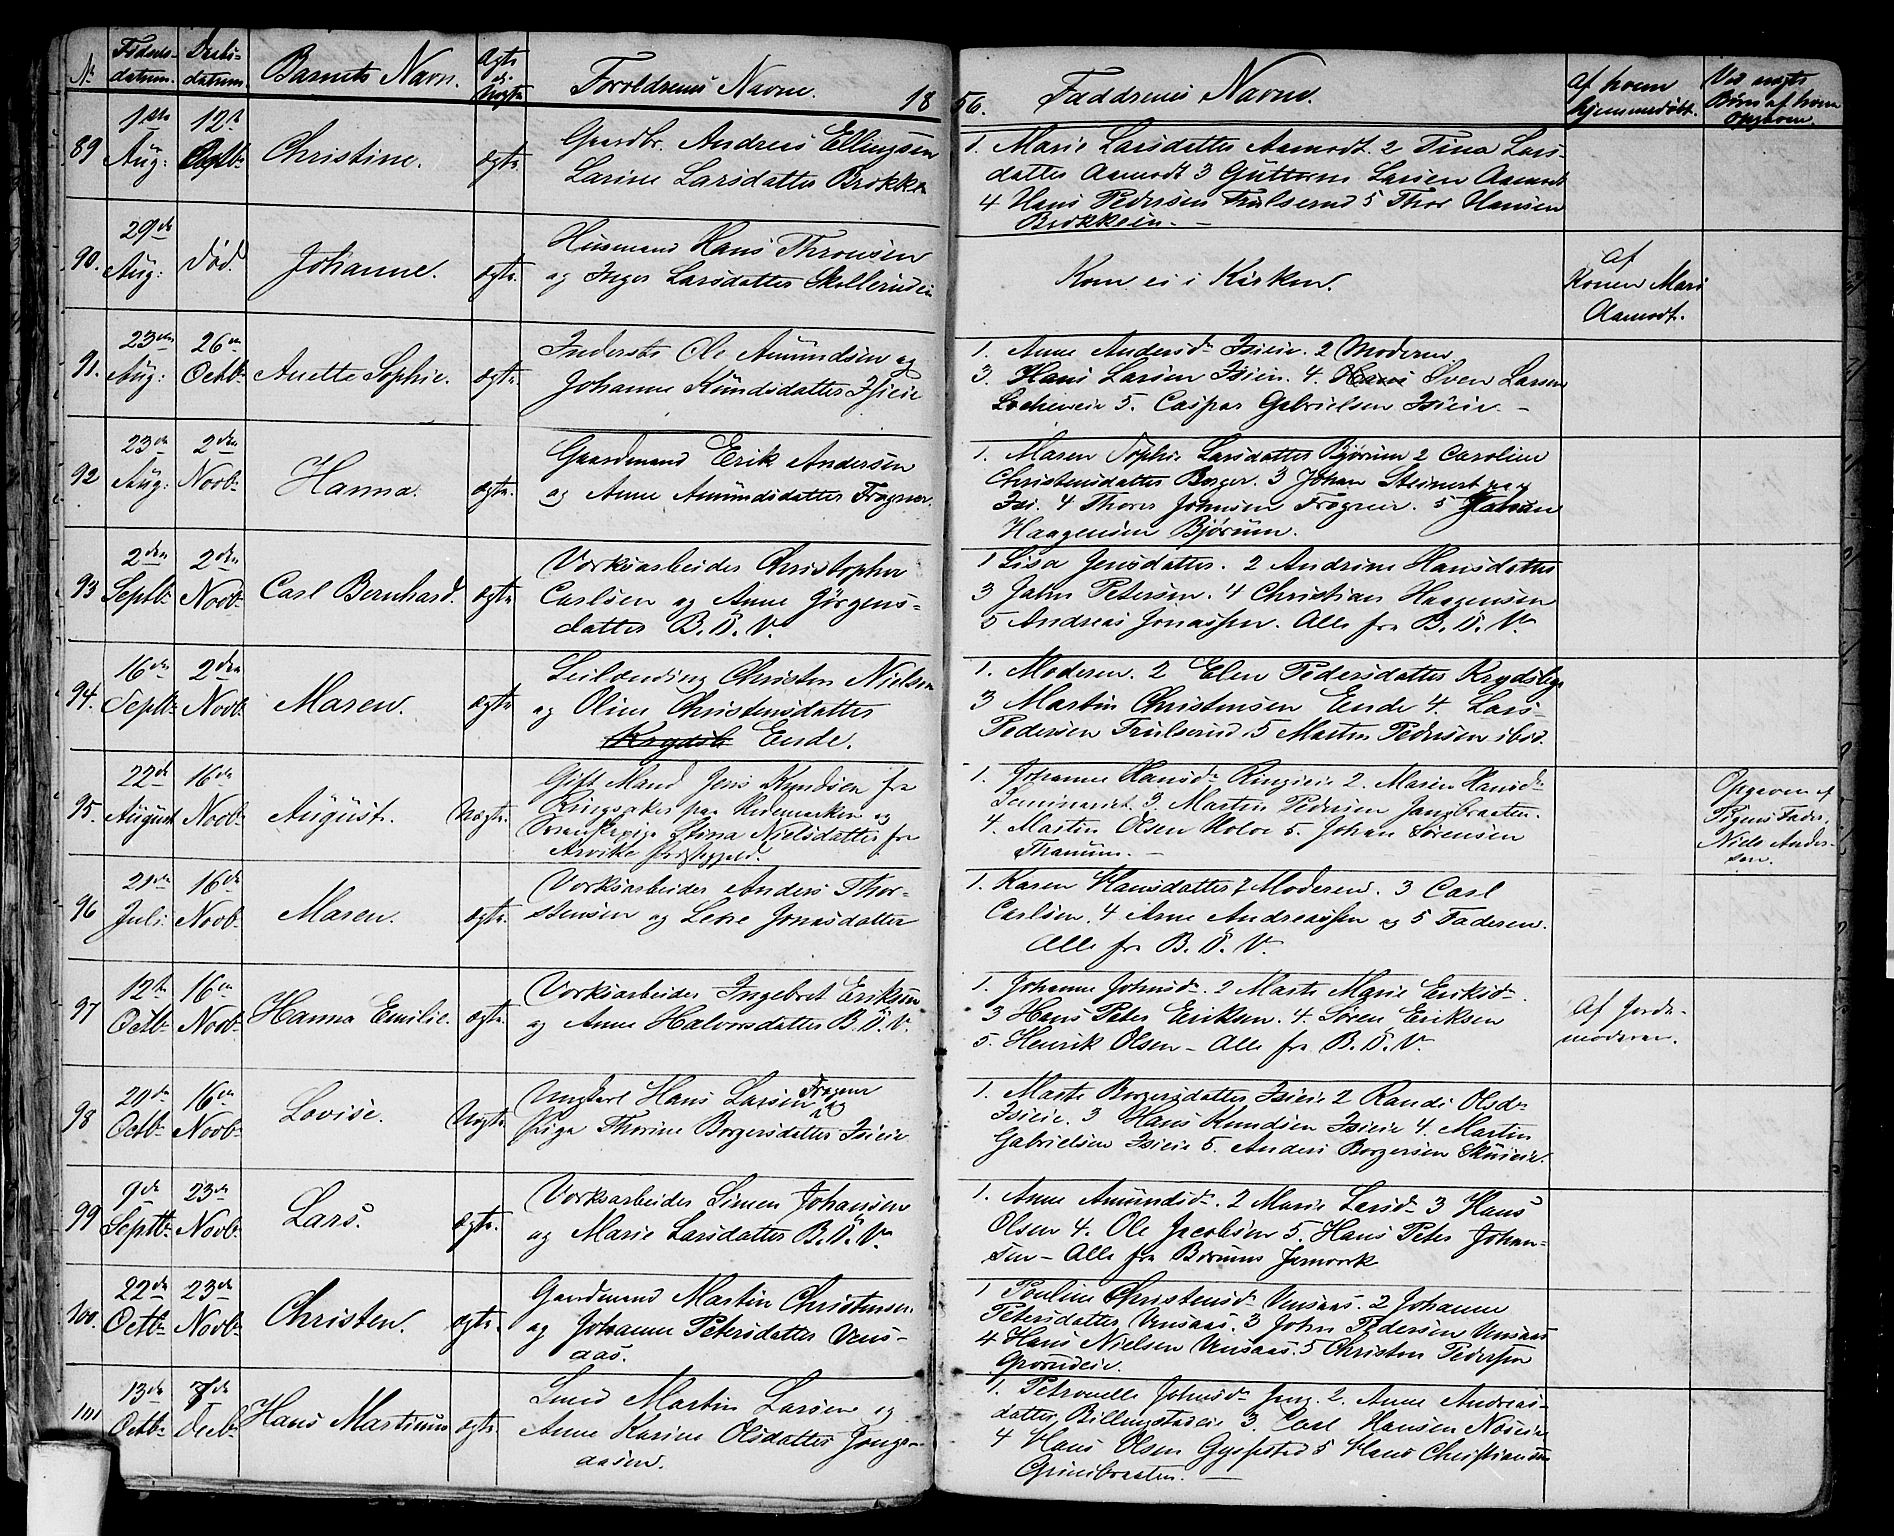 No Fødsels- datum. Daabs- datum. Barnets Navn. Ægte el. Uægte Foreldrenes Navne. 18
56. Faddrenes Navne. Af hvem hjemmedøbt. Ved uægte Børn af hvem opgaven.
89 1ste Aug: 12te Octbr Christine. ægte. Gaardbr. Andreas Ellingsen
Larine Larsdatter Brøkken
1. Marie Larsdatter Aamodt. 2 Tina Lars-
datter Aamodt 3 Guttorm Larsen Aamodt
4 Hans Pedersen Frulserud 5 Thor Hansen
Brøkkeien. –
90. 29de Aug: død. Johanne. ægte. Husmand Hans Thronsen
og Inger Larsdatter
Kom ei i Kirken.
Af
Konen Mari
Aamodt.
91. 23de Aug: 26de Octbr Anette Sophie. ægte. Inderste Ole Amundsen og
Johanne Knudsdatter Isieie
1. Anne Andersdr Isieie. 2 Moderen.
3. Hans Larsen Isieie. 4. Hans Sven Larsen
5. Caspar Gabrielsen Isieie. –
92 23de Aug: 2den Novbr Hanna. ægte. Gaardmand Erik Andersen
og Anne Amundsdatter Frogner.
1. Maren Sophie Larsdatter Bjørum 2 Caroline
Christensdatter Borger. 3 Johan Steinert paa
Isi. 4 Thorer Johnsen Frogner. 5
Haagensen Bjørum.
93 2den Septbr 2den Novbr Carl Bernhard. ægte Værksarbeider Christopher
Carlsen og Anne Jørgens-
datter B. J. V.
1 Lisa Jensdatter. 2 Andrine Hansdatter
3 John Petersen. 4 Christian Haagensen
5 Andreas Jonassen. Alle fra B. J. V.
94. 16de Septbr 2den Novbr Maren. ægte Leilænding Christen Nielsen
og Oline Christensdatter
Krydsb Ende.
1. Moderen. 2 Elen Pedersdatter Krydsby
3 Martin Christensen Ende 4. Lars
Pedersen Frulserud 5 Martin Pedersen ibid.
95. 22de August 16de Novbr August. Uægte. Gift Mand Jens Knudsen fra
Ringsaker paa Hedemarken og
Svenskepige Stina Nielsdatter fra
Arvika Prestegjeld.
1. Johanne Hansdr Ringieie 2. Maren Hansdr
Seminariet 3. Martin Pedersen Jongbraaten.
4. Martin Olsen Holoe 5. Johan Sørensen
Thanum. –
Opgaven af
Pigens Fader,
Niels Ander-
sen.
96 21de Juli. 16de Novbr Maren. ægte. Værksarbeider Anders Thor-
stensen og Lene Jonasdatter
1. Karen Hansdatter 2 Moderen. 3 Carl
Carlsen. 4 Arne Andreassen og 5 Faderen.
Alle fra B. J. V.
97 12te Octbr 16de Novbr Hanna Emilie. ægte. Værksarbeider Ingebret Eriksen
og Anne Halvorsdatter B. J. V.
1. Johanne Johnsdr 2 Marte Marie Eriksdr.
3 Hans Peter Eriksen. 4. Søren Eriksen
5. Henrik Olsen – Alle fra B. J. V.
Af Jorde-
moderen.
98 29de Octbr 16de Novbr Lovise. Uægte. Ungkarl Hans Larsen Frogner og
Pige Thorine Borgersdatter Isieie
1. Marte Borgersdatter Isieie 2 Randi Olsdr
Isieie. 3 Hans Knudsen Isieie 4. Martin
Gabrielsen Isieie 5. Anders Borgersen Skuieie.
99 9de Septbr 23de Novbr Lars. ægte. Værksarbeider Simen Johansen
og Marie Larsdatter B. J. V.
1. Anne Amundsdr 2 Marie Larsdr 3 Hans
Olsen 4. Ole Jacobsen 5. Hans Peter Johan-
sen – Alle fra Bærums Jernværk
100. 22de Octbr 23de Novbr Christen. ægte. Gaardmand Martin Christensen
og Johanne Petersdatter Vens-
aas.
1 Pauline Christensdr Vensaas. 2 Johanne
Petersdatter Vensaas. 3 John Pedersen Vensaas
4 Hans Nielsen Vensaas. 5 Christen Pedersen
101 13de Octbr 7de Decbr Hans Martinus ægte. Smed Martin Larsen og
Anne Karine Olsdatter Jongs-
aasen.
1. Petronelle Johnsdr Jong. 2. Anne Andreas-
datter Billingstadeie 3. Carl Hansen Næseie
4 Hans Olsen Gyssestad 5 Hans Christiansen
Grinibraaten. –